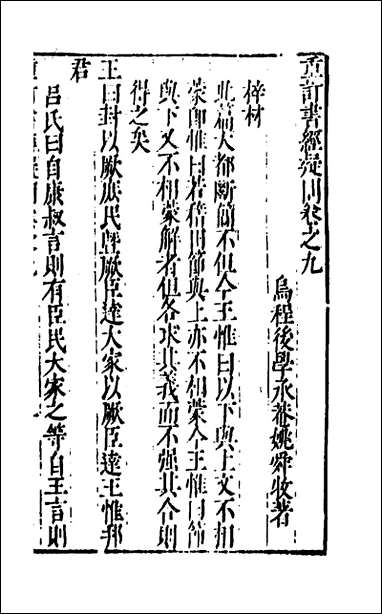 重訂書經疑問卷之九
烏程後學承菴姚舜牧著
梓材
此篇大都斷簡不但今王惟曰以下與上文不相
蒙卽惟曰若稽田節與上亦不相蒙今王惟曰節
與下又不相蒙解者但各求其義而不强其合則
得之矣
王曰封以厥庶民曁厥臣達大家以厥臣達王惟邦
君
呂氏曰自康叔言則有臣民大家之等自王言則